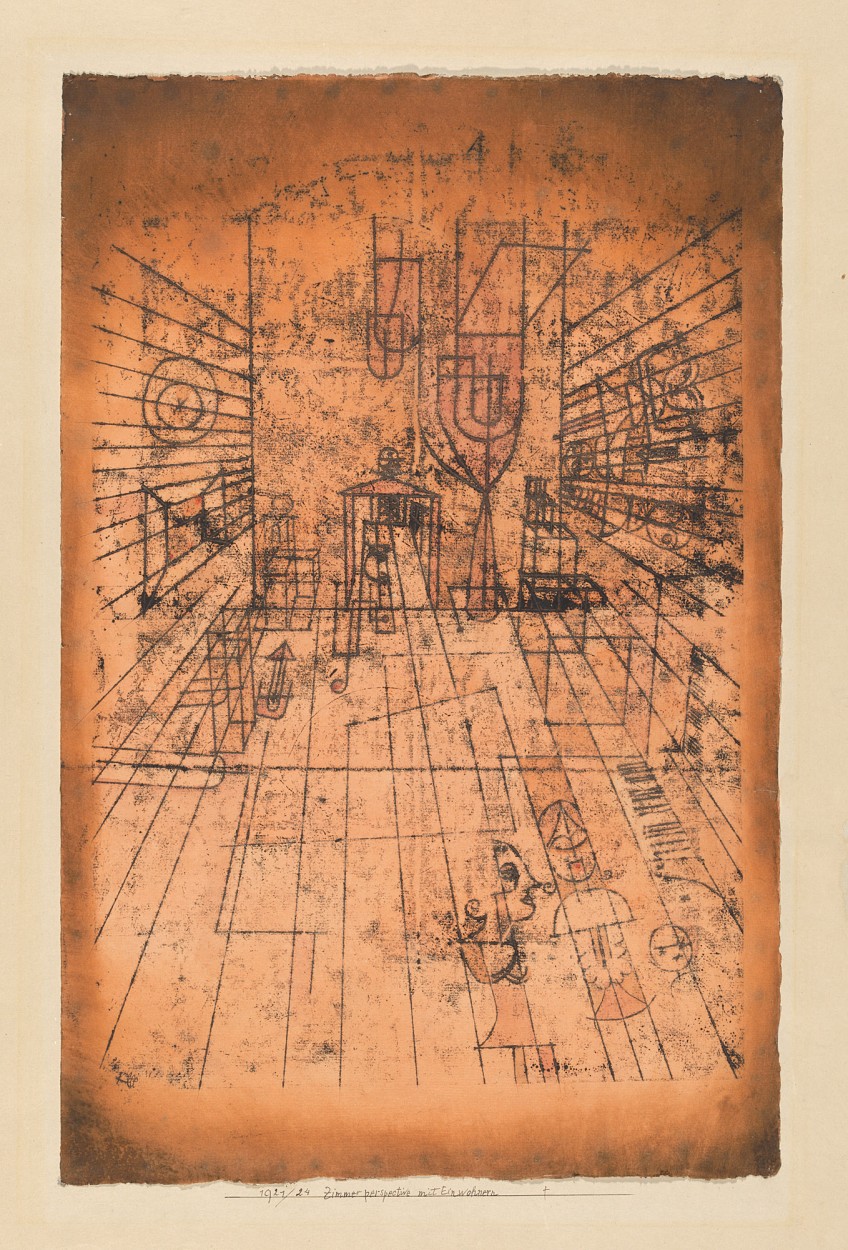 1921/24 Zimmerperspective mit Einwohnern †